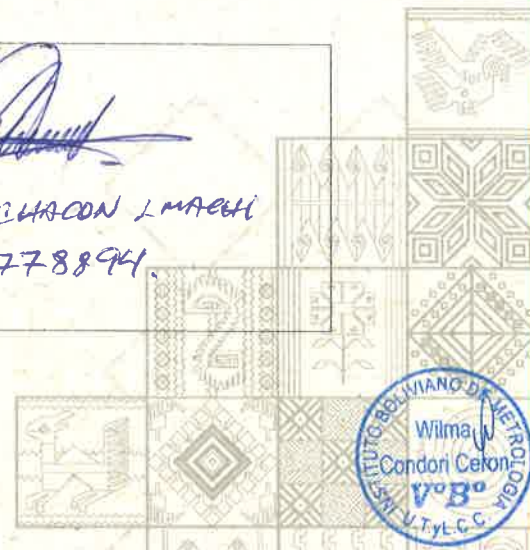 CHACON
778894.
INSTITUTO BOLIVIANO DE METROLOGIA
Wilma
Condori Ceron
VºBº
U.T.yL.C.C.